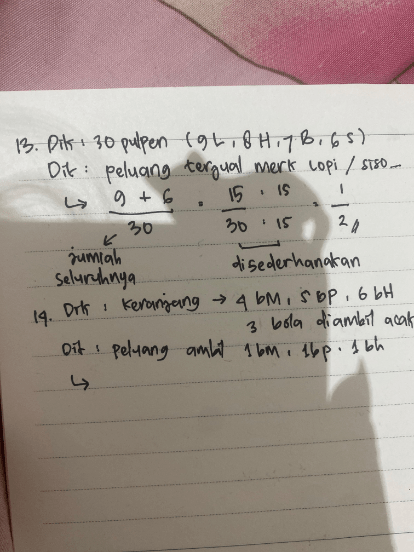 13. Dik : 30 pulpen (9L, 8H, 7B, 6S)
Dit : peluang terjual merk Lopi / SISO
↳ 9 + 6 / 30 = 15 : 15 / 30 : 15 = 1 / 2 //
jumlah seluruhnya
disederhanakan
14. Dik : keranjang → 4 bM, 5 bP, 6 bH
3 bola diambil acak
Dit : peluang ambil 1 bm, 1 bp, 1 bh
↳